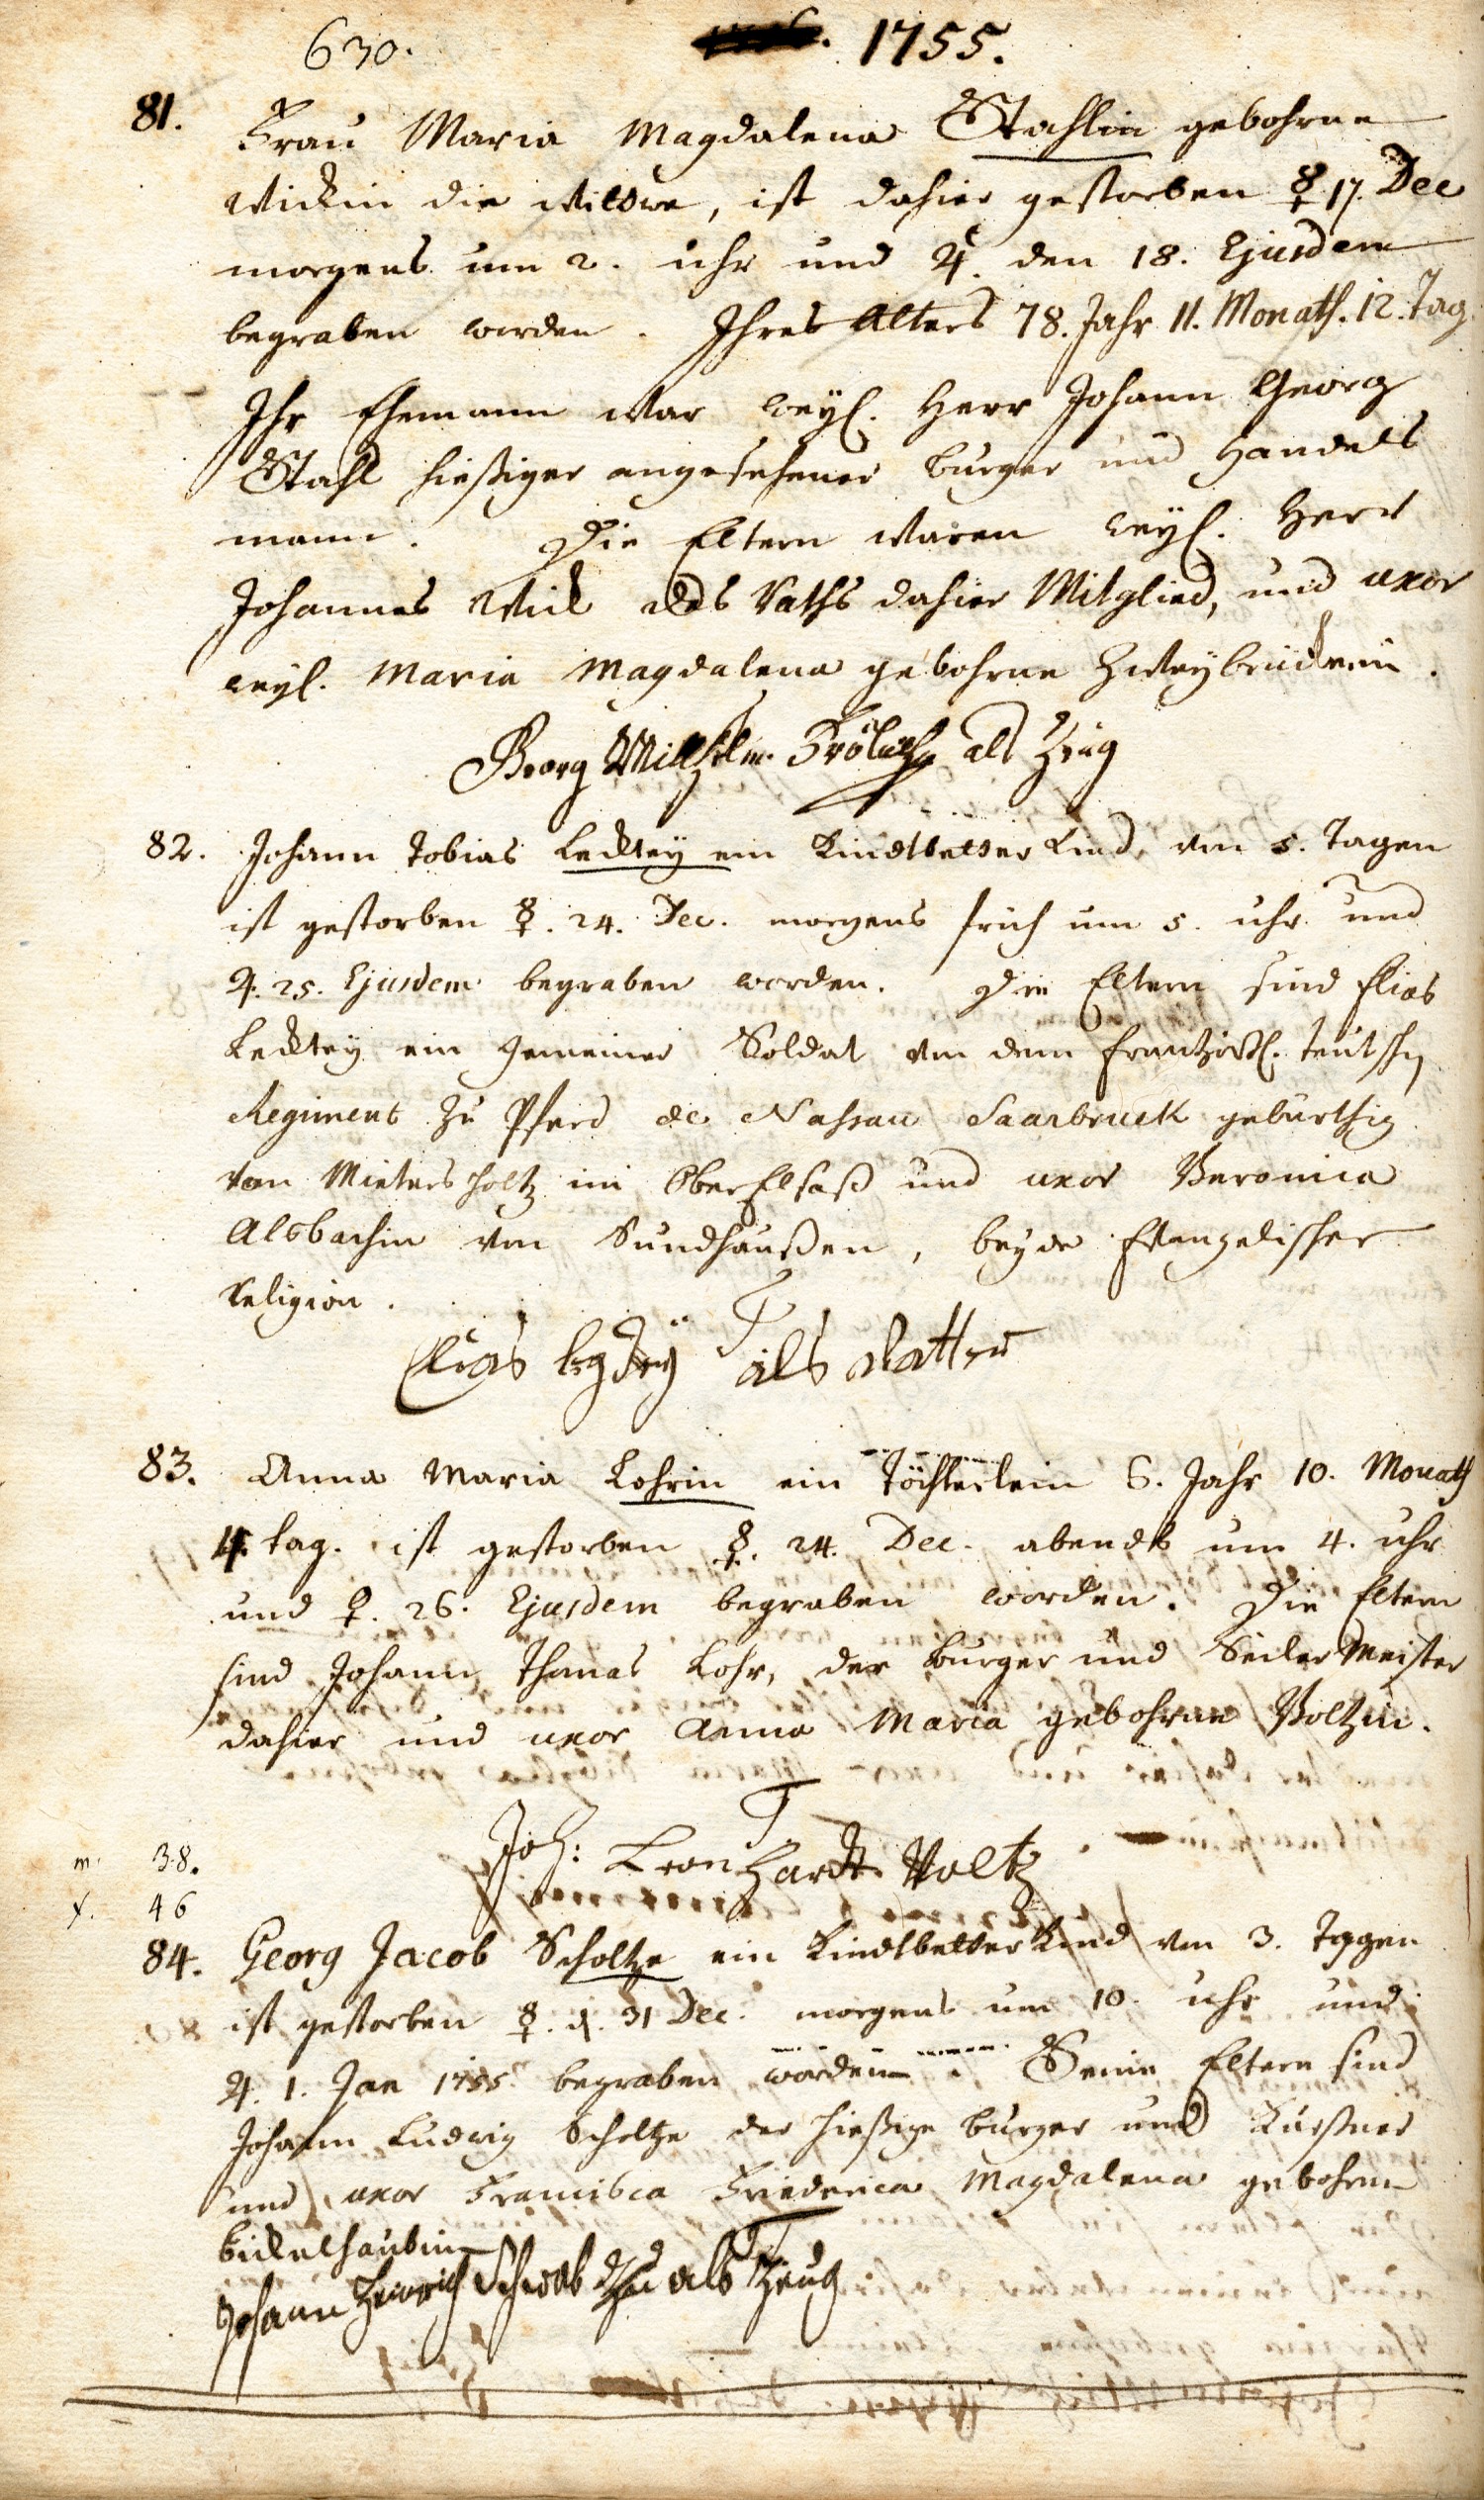 630. 1755.
81. Frau Maria Magdalena Stahlin gebohrne
Wickin die Wittwe, ist dahier gestorben ☿ 17. Dec
morgens um 2. uhr und ♃. den 18. Ejusdem
begraben worden. Ihres Alters 78. Jahr 11. Monath. 12. Tag.
Ihr Ehemann war weyl. Herr Johann Georg
Stahl hießiger angesehener burger und Handels
mann. Die Eltern waren weyl. Herr
Johannes Wick des Raths dahier Mitglied, und uxor
weyl. Maria Magdalena gebohrne Zweybrückerin.
Georg Willhelm Frölich als Zeug
82. Johann Tobias Lecktey ein Kindtbetter Kind, von 5. Tagen
ist gestorben ☿. 24. Dec. morgens früh um 5. uhr und
♃. 25. Ejusdem begraben worden. Die Eltern sind Elias
Lecktey ein gemeiner Soldat von dem frantzößl. teutschen
Regiment zu Pferd de Nassau Saarbruck gebürthig
von Mietersholtz im OberElsaß und uxor Veronica
Alsbachin von Sundhaußen, beyde Evangelischer
Religion.
Elias als Vatter
83. Anna Maria Lohrin ein Töchterlein 6. Jahr 10. Monath
4. tag. ist gestorben ☿. 24. Dec. abends um 4. uhr
und ♀. 26. Ejusdem begraben worden. Die Eltern
sind Johann Thomas Lohr, der burger und Seiler Meister
dahier und uxor Anna Maria gebohrne Voltzin.
Joh: Leonhardt Voltz
m. 38.
f. 46
84. Georg Jacob Scholtze ein Kindtbetter Kind von 3. Tagen
ist gestorben ☿. d. 31 Dec. morgens um 10. uhr und
♃. 1. Jan 1755 begraben worden. Seine Eltern sind
Johann Ludwig Scholtze der hießige burger und Kürßner
und uxor Francisca Friederica Magdalena gebohrne
Bickelhaubin
Johann Heinrich Schwab als Zeug